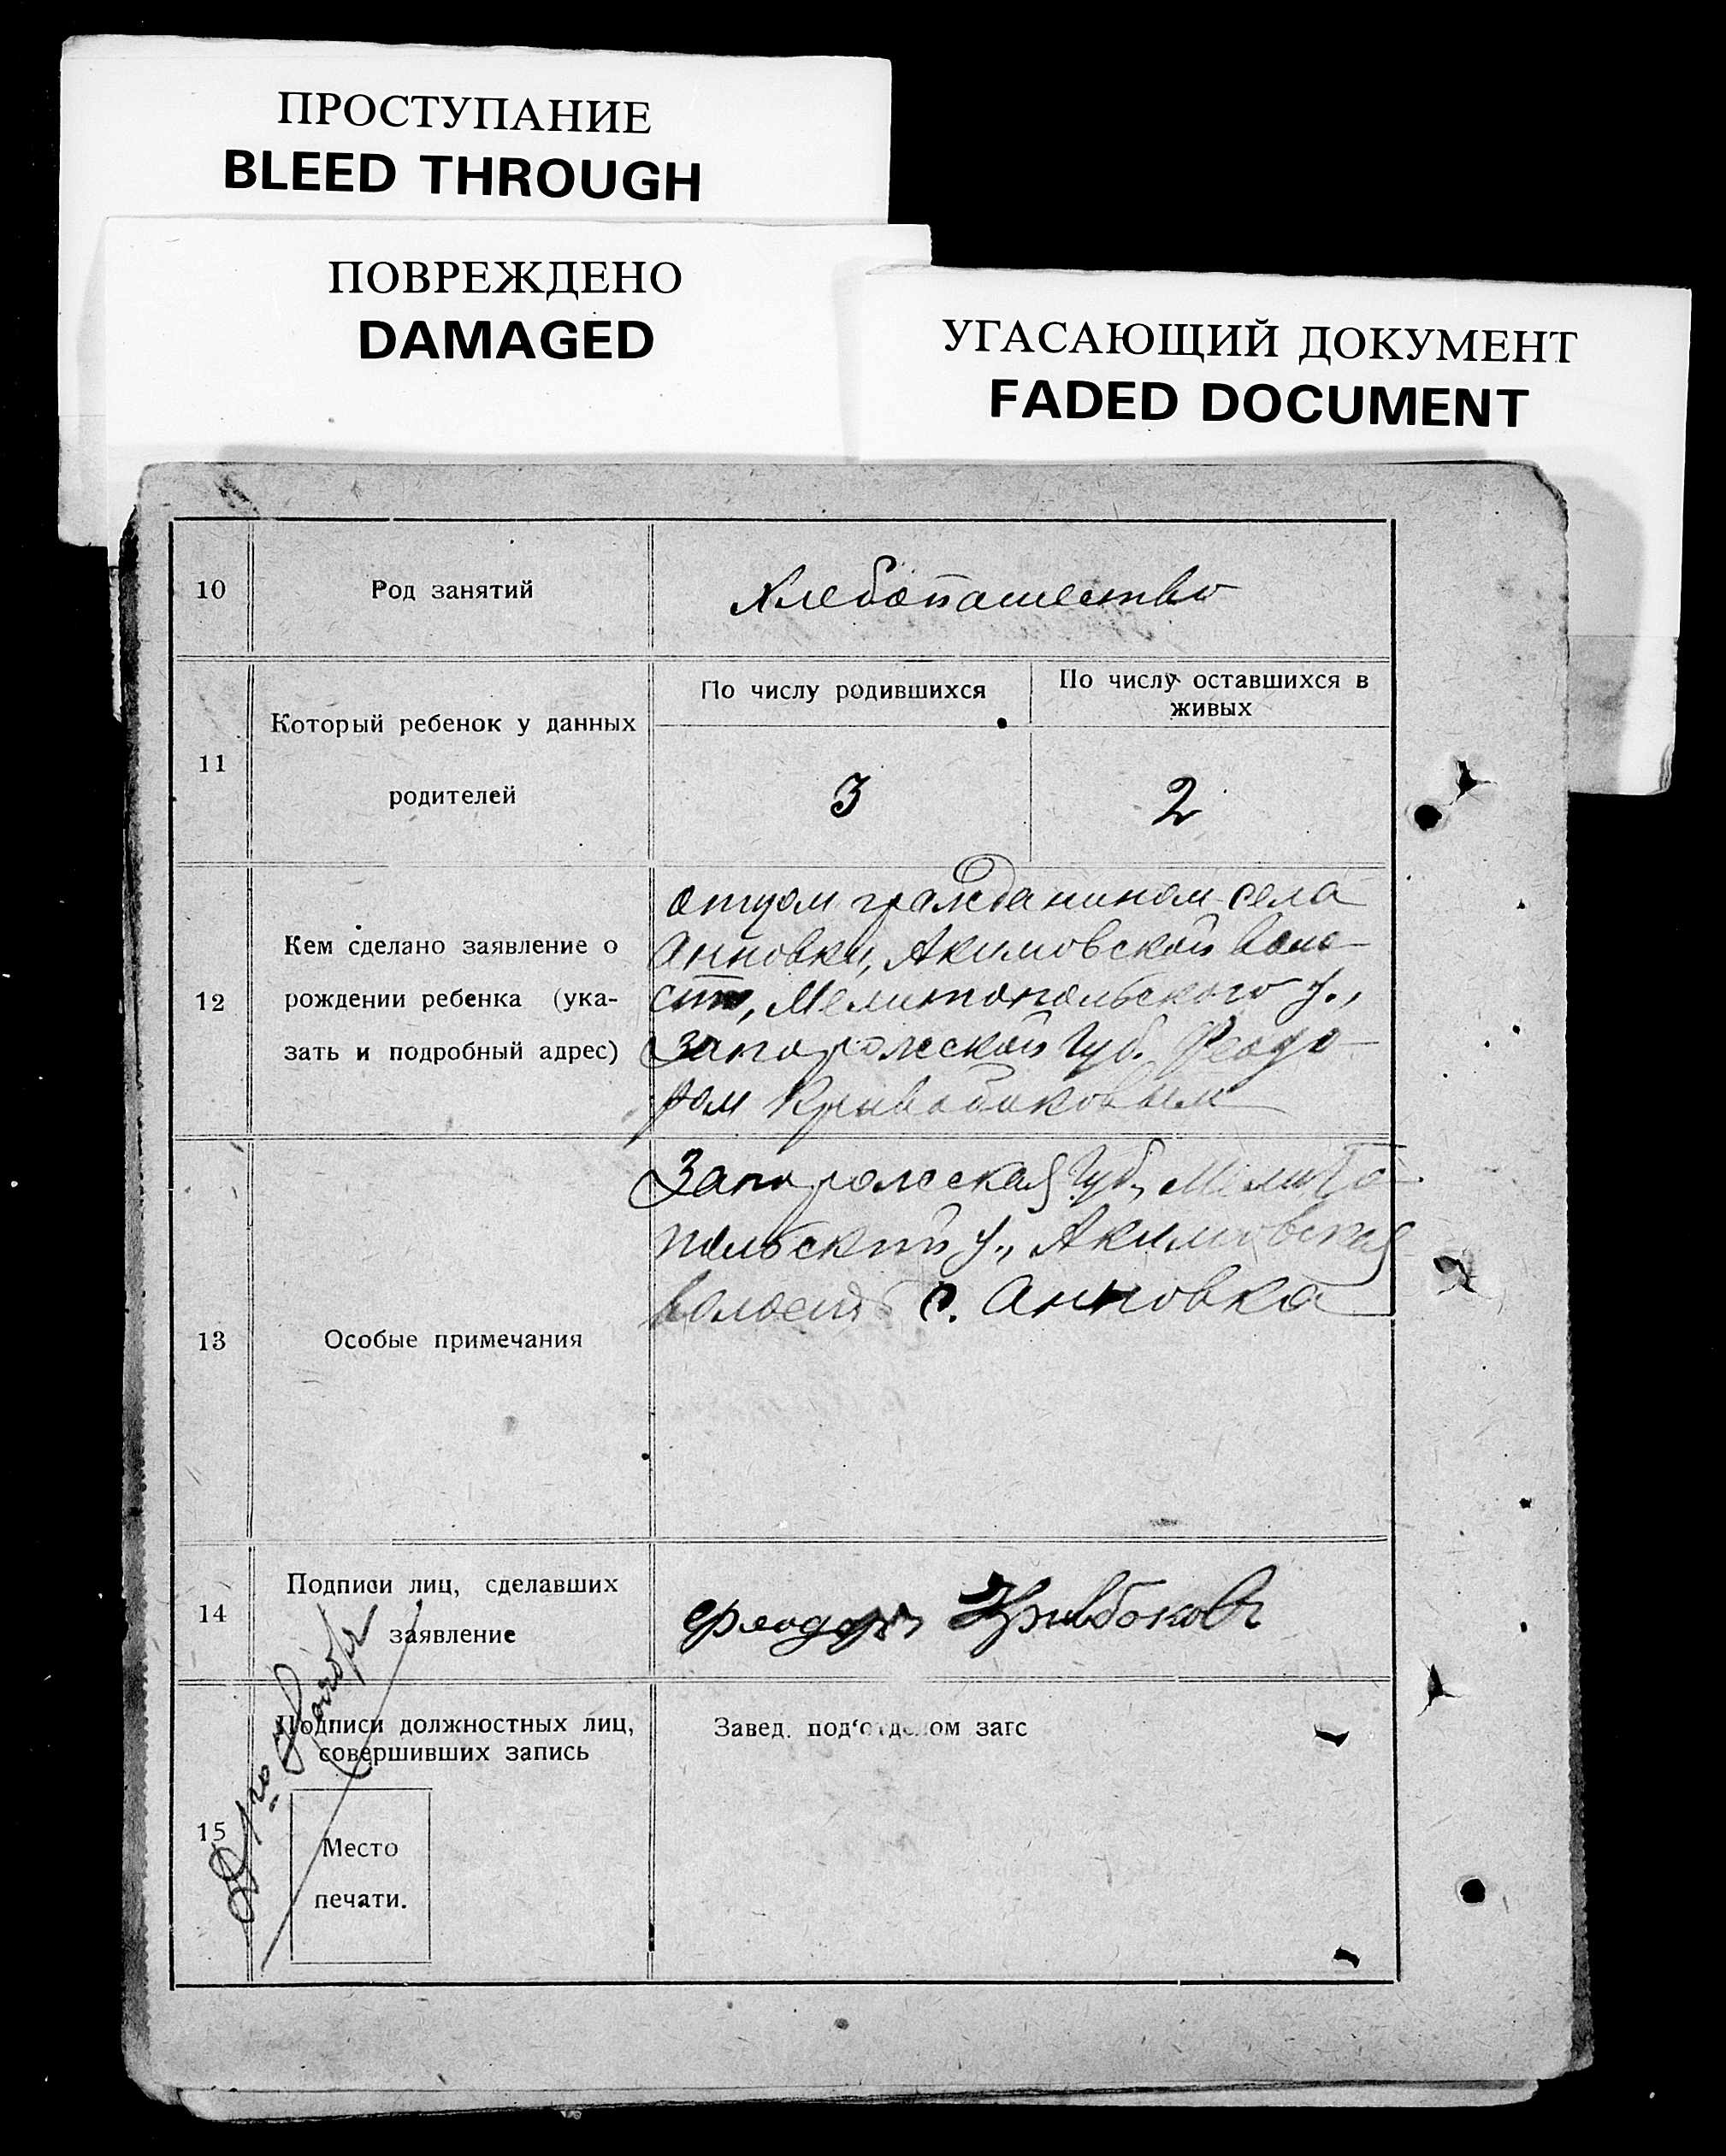 ПРОСТУПАНИЕ
BLEED THROUGH
ПОВРЕЖДЕНО
DAMAGED
УГАСАЮЩИЙ ДОКУМЕНТ
FADED DOCUMENT
10
Род занятий
Хлебопашество
11
Который ребенок у данных
родителей
По числу родившихся
По числу оставшихся в
живых
3
2
12
Кем сделано заявление о
рождении ребенка (ука-
зать и подробный адрес)
отцом гражданином села
Анновки, Акимовской воло-
сти, Мелитопольского у.,
Запорожской губ. Феодо-
ром
13
Особые примечания
Запорожская губ., Мелито-
польский у., Акимовская
волость с. Анновка
14
Подписи лиц, сделавших
заявление
Феодор
15
Подписи должностных лиц,
совершивших запись
Место
печати.
Завед. под'отделом загс